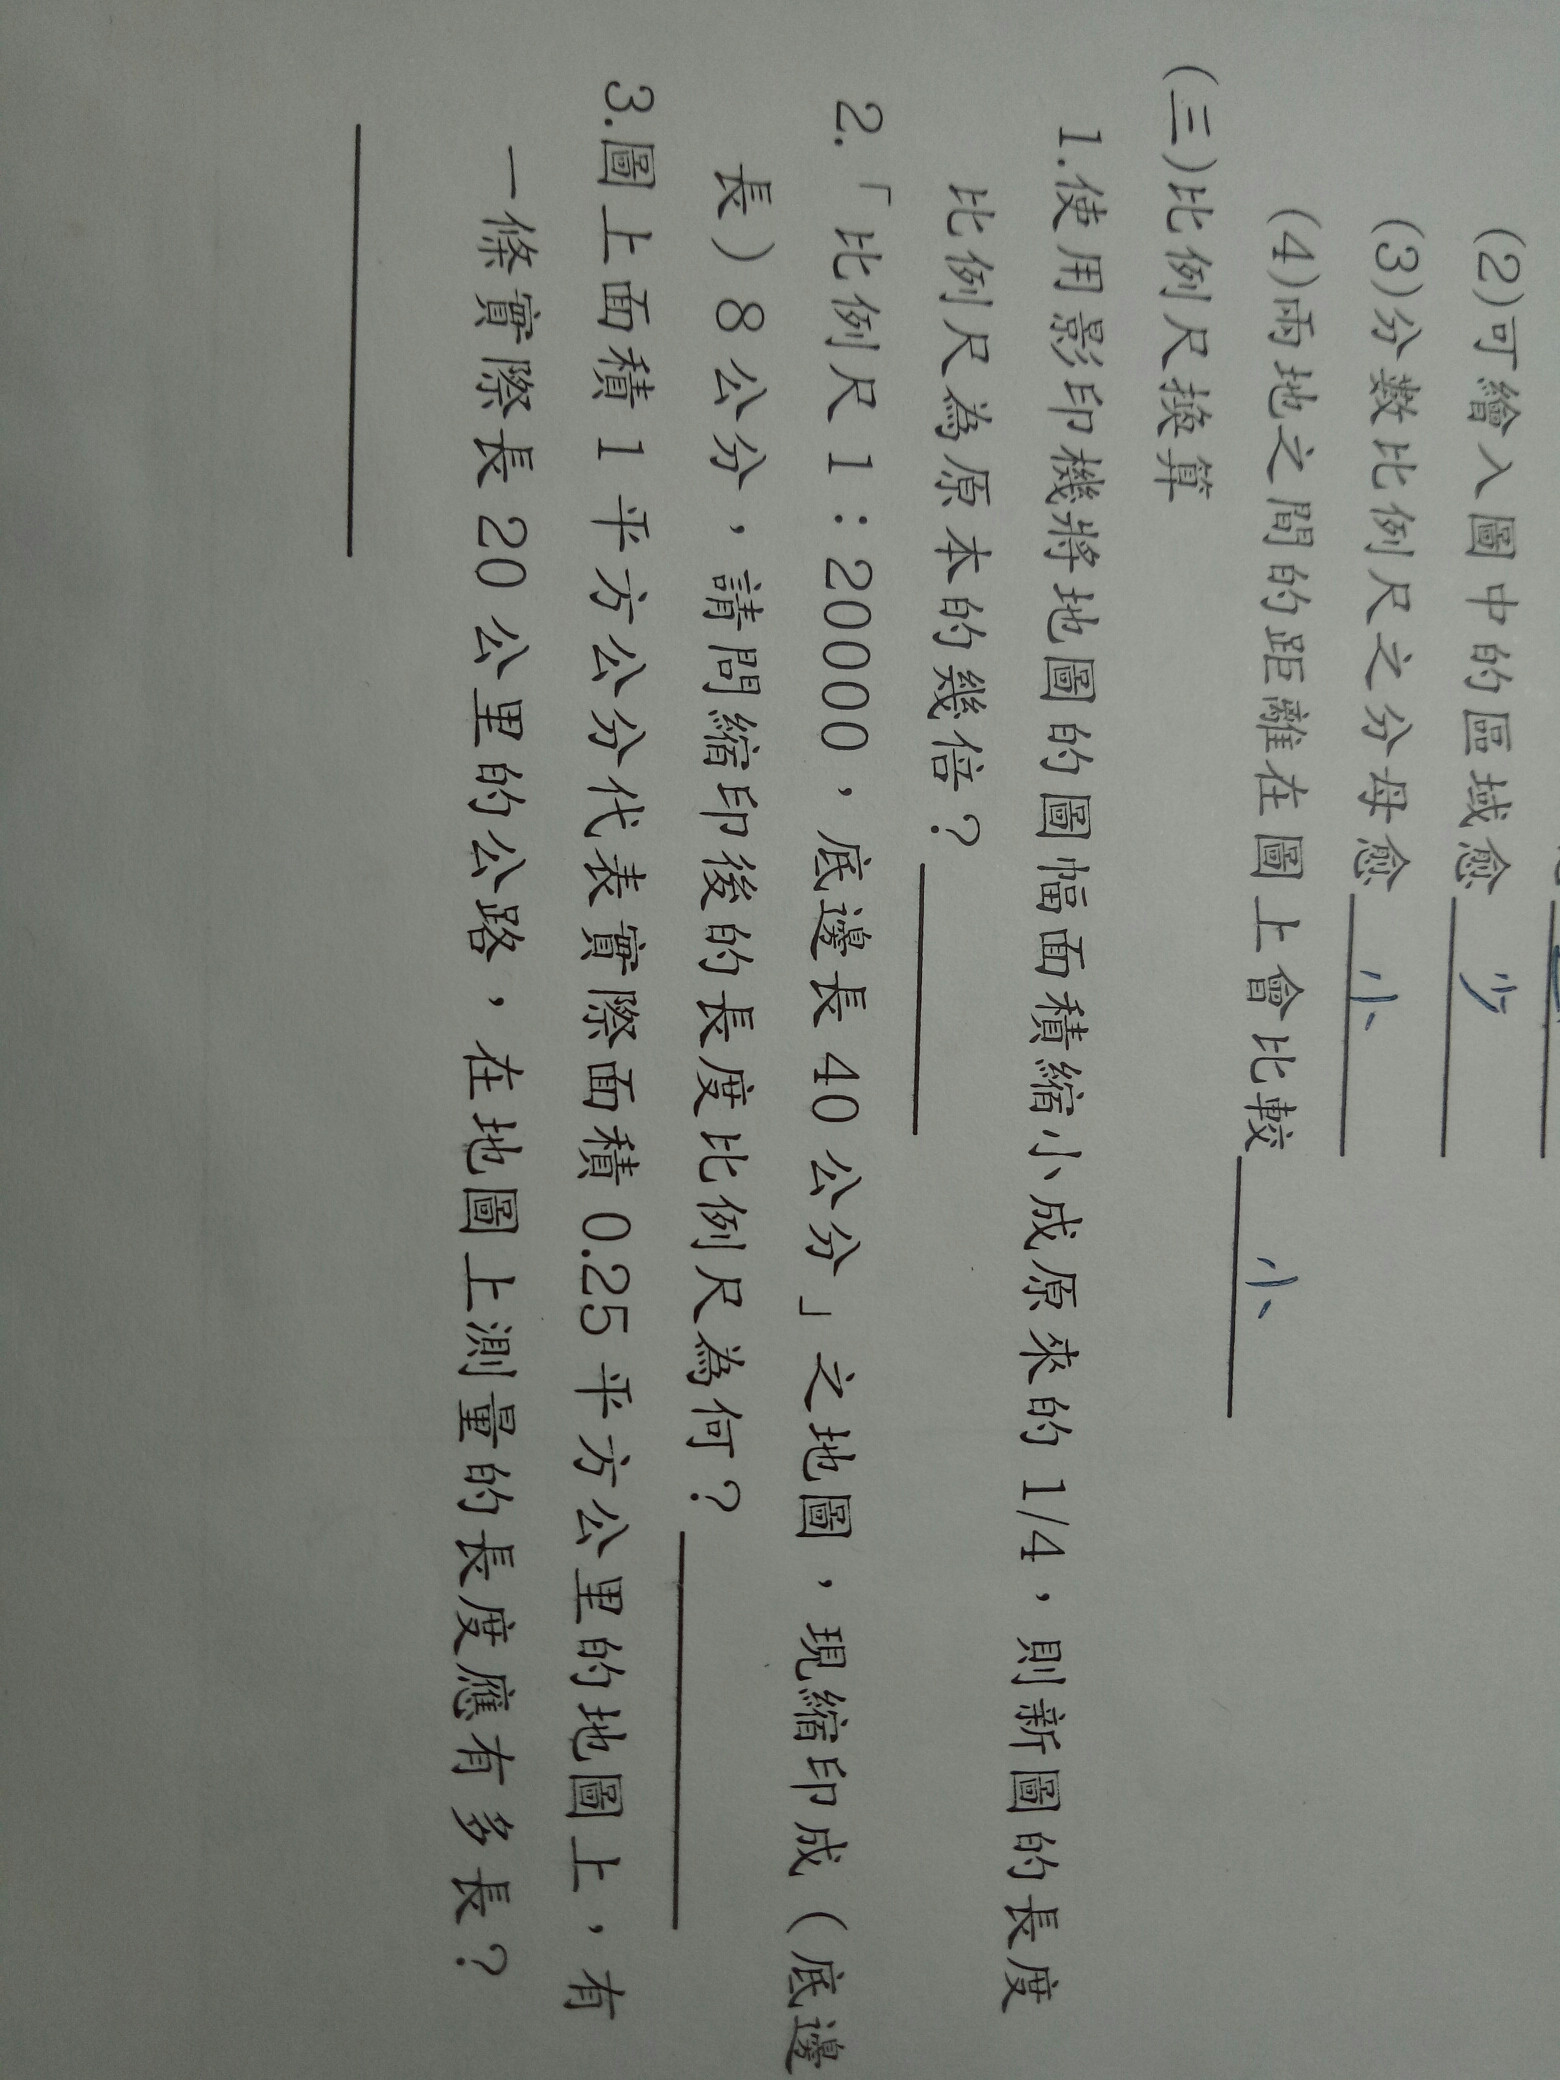 (2)可繪入圖中的區域愈 少
(3)分數比例尺之分母愈 小
(4)兩地之間的距離在圖上會比較 小
(三)比例尺換算
1.使用影印機將地圖的圖幅面積縮小成原來的 1/4，則新圖的長度
比例尺為原本的幾倍？
2.「比例尺 1：20000，底邊長 40 公分」之地圖，現縮印成（底邊
長）8 公分，請問縮印後的長度比例尺為何？
3.圖上面積 1 平方公分代表實際面積 0.25 平方公里的地圖上，有
一條實際長 20 公里的公路，在地圖上測量的長度應有多長？